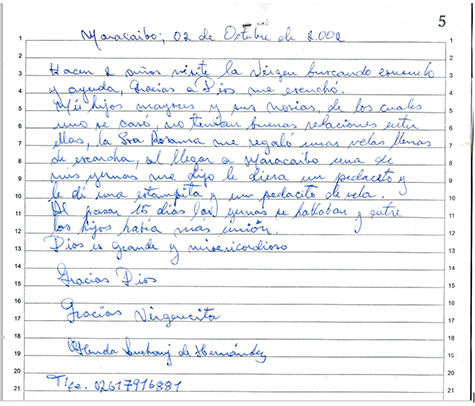 5
Maracaibo, 02 de Octubre de 2.002
Hacen 2 años visite la Virgen buscando consuelo
y ayuda, Gracias a Dios me escuchó.
Mis hijos mayores y sus novias, de los cuales
uno se casó, no tenían buenas relaciones entre
ellas, la Sra Rosanna me regaló unas velas llenas
de escarcha, al llegar a Maracaibo una de
mis yernas me dijo le diera un pedacito y
le dí una estampita y un pedacito de vela.
Al pasar 15 días las yernas se hablaban y entre
los hijos había mas unión.
Dios es grande y misericordioso
Gracias Dios
Gracias Virgencita
de Hernández
Tlfe. 02617916881